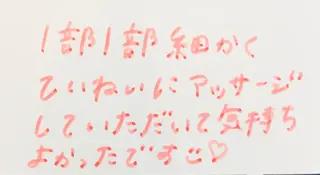 1部1部細かく
ていねいにアッサージ
していただいて気持ち
よかったですご♡